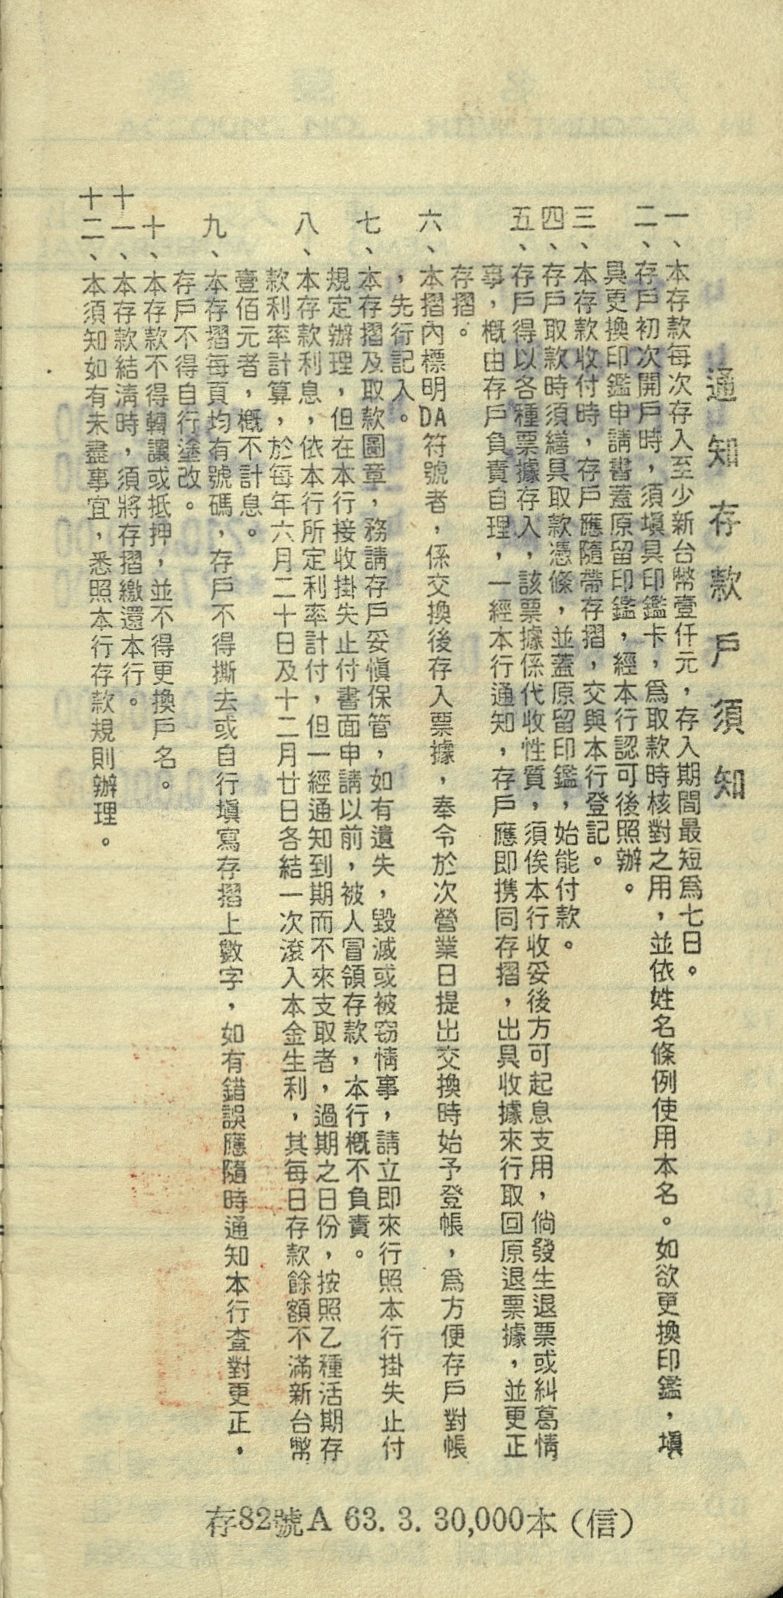 通知存款戶須知
一、本存款每次存入至少新台幣壹仟元，存入期間最短爲七日。
二、存戶初次開戶時，須塡具印鑑卡，爲取款時核對之用，並依姓名條例使用本名。如欲更換印鑑，塡
具更換印鑑申請書蓋原留印鑑，經本行認可後照辦。
三、本存款收付時，存戶應隨帶存摺，交與本行登記。
四、存戶取款時須繕具取款憑條，並蓋原留印鑑，始能付款。
五、存戶得以各種票據存入，該票據係代收性質，須俟本行收妥後方可起息支用，倘發生退票或糾葛情
事，概由存戶負責自理，一經本行通知，存戶應即携同存摺，出具收據來行取回原退票據，並更正
存摺。
六、本摺內標明DA符號者，係交換後存入票據，奉令於次營業日提出交換時始予登帳，爲方便存戶對帳
，先行記入。
七、本存摺及取款圖章，務請存戶妥愼保管，如有遺失，毀滅或被窃情事，請立即來行照本行掛失止付
規定辦理，但在本行接收掛失止付書面申請以前，被人冒領存款，本行概不負責。
八、本存款利息，依本行所定利率計付，但一經通知到期而不來支取者，過期之日份，按照乙種活期存
款利率計算，於每年六月二十日及十二月廿日各結一次滾入本金生利，其每日存款餘額不滿新台幣
壹佰元者，概不計息。
九、本存摺每頁均有號碼，存戶不得撕去或自行塡寫存摺上數字，如有錯誤應隨時通知本行查對更正，
存戶不得自行塗改。
十、本存款不得轉讓或抵押，並不得更換戶名。
十一、本存款結淸時，須將存摺繳還本行。
十二、本須知如有未盡事宜，悉照本行存款規則辦理。
存82號A 63. 3. 30,000本（信）